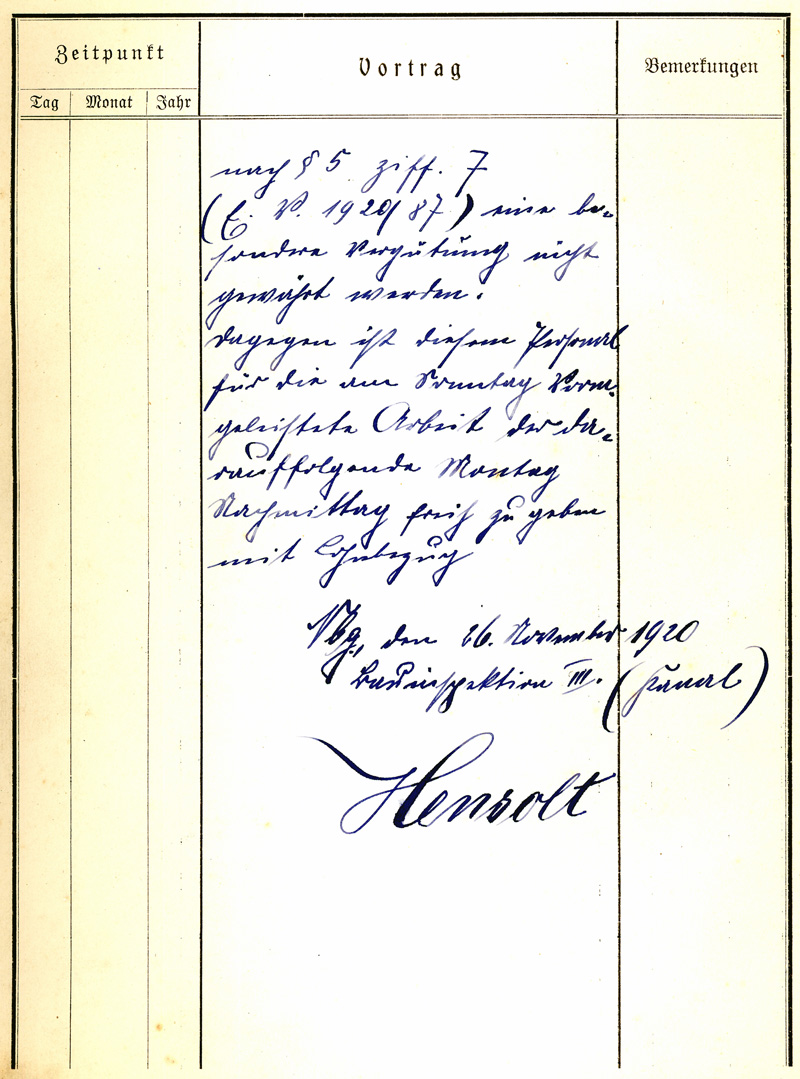 Zeitpunkt
Vortrag
Bemerkungen
Tag Monat Jahr
nach § 5 Ziff. 7
(E. V. 1920/87) eine be-
sondere Vergütung nicht
gewährt werden.
Dagegen ist diesem Personal
für die am Sonntag Vorm.
geleistete Arbeit der da-
rauffolgende Montag
Nachmittag freih zu geben
mit Lohnbezug
Nbg., den 26. November 1920
Bauinspektion III. (Kanal)
Hensolt